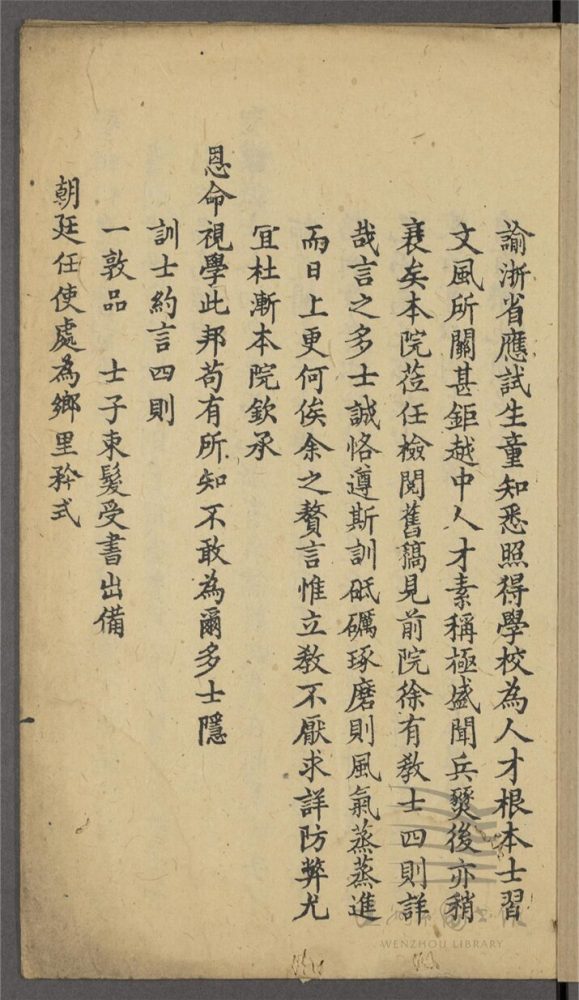 諭浙省應試生童知悉照得學校為人才根本士習
文風所關甚鉅越中人才素稱極盛聞兵燹後亦稍
衰矣本院蒞任檢閱舊稿見前院徐有教士四則詳
哉言之多士誠恪遵斯訓砥礪琢磨則風氣蒸蒸進
而日上更何俟余之贅言惟立教不厭求詳防弊尤
宜杜漸本院欽承
恩命視學此邦苟有所知不敢為爾多士隱
訓士約言四則
一敦品　士子束髮受書出備
朝廷任使處為鄉里矜式
WENZHOU LIBRARY